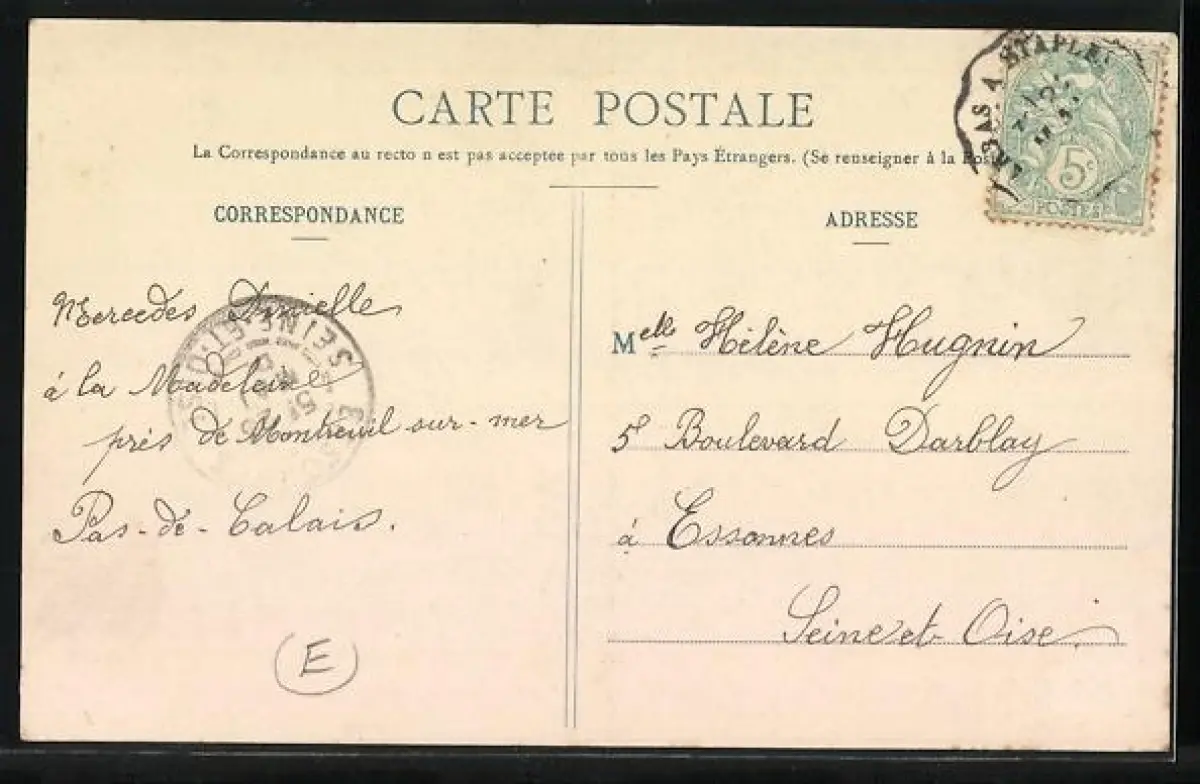 CARTE POSTALE
La Correspondance au recto n est pas acceptee par tous les Pays Étrangers. (Se renseigner à la Post
CORRESPONDANCE
Mercedes
à la Madeleine
près de Montreuil-sur-mer
Pas-de-Calais.
E
ADRESSE
Melle Hélène Hugnin
5 Boulevard Darblay
à Essonnes
Seine et Oise
ARRAS A ETAPLES
5c
POSTES
SEINE-ET-O